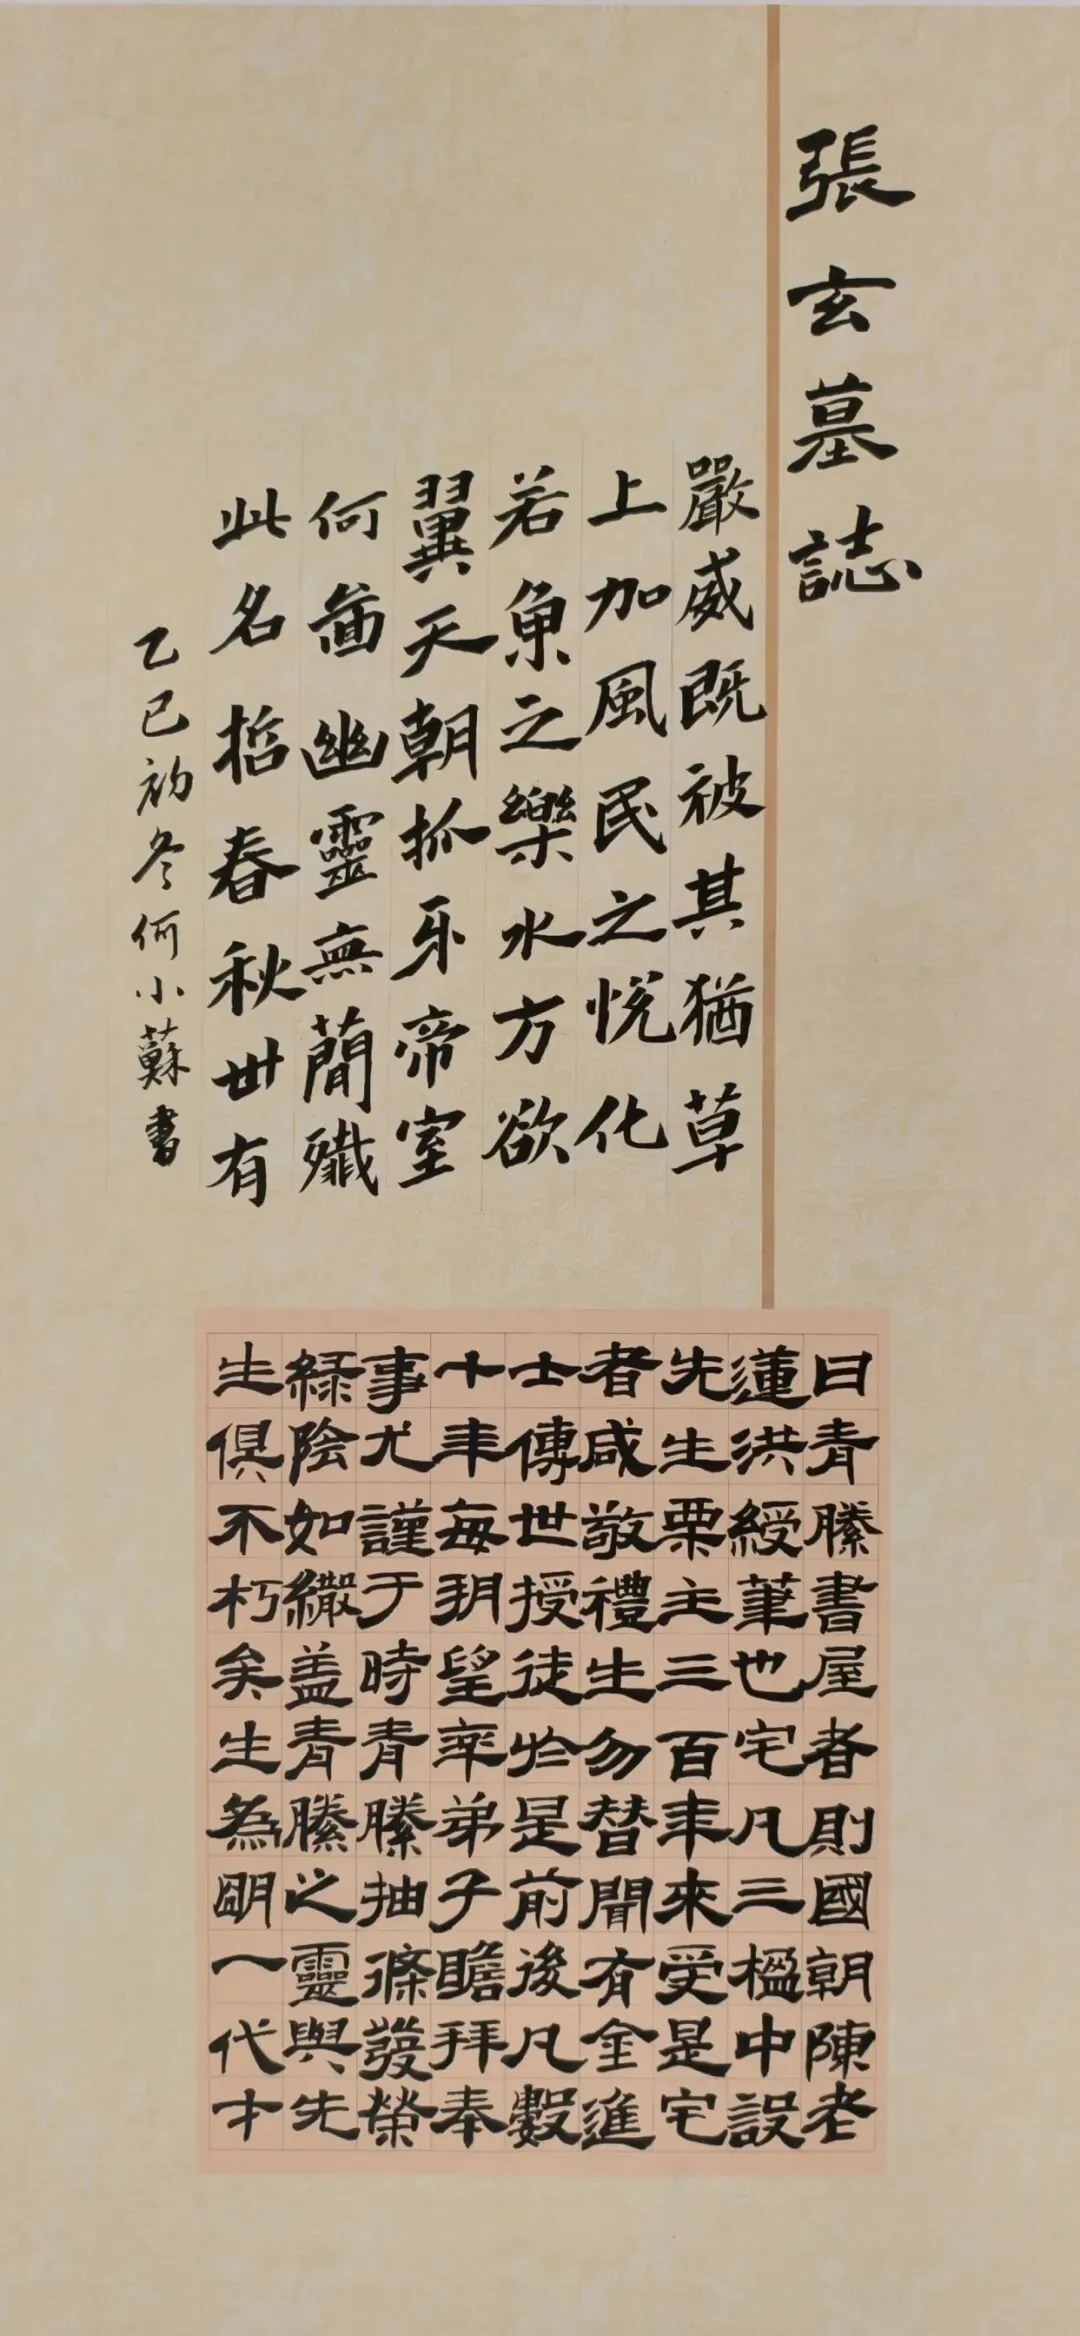 張玄墓誌
嚴威既被其猶草
上加風民之悅化
若魚之樂水方欲
翼天朝抓牙帝室
何啚幽靈無蕑殲
此名哲春秋卅有
乙巳初冬何小蘇書
曰青滕書屋者則國朝陳老
蓮洪綬筆也宅凡三楹中設
先生栗主三百年來受是宅
者咸敬禮生勿替聞有金進
士傳世授徒於是前後凡數
十年每朔望率弟子瞻拜奉
事尤謹于時青滕抽條發榮
綠陰如繖盖青滕之靈與先
生俱不朽矣生為明一代才